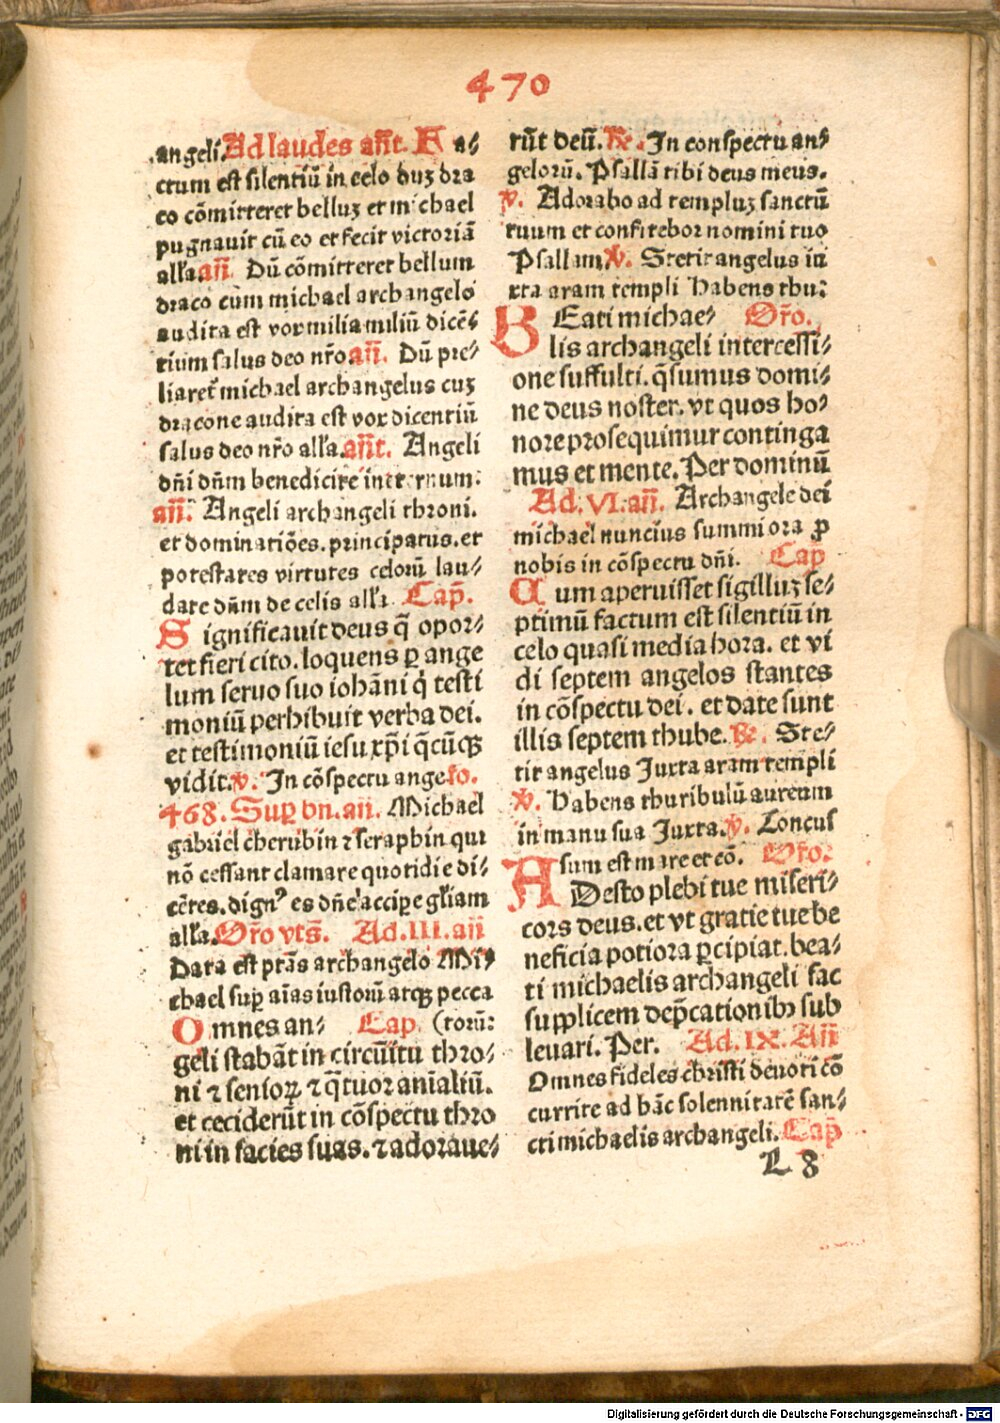 470
angeli. Ad laudes añt. Fa⸗
ctum est silentiũ in celo duꝫ dra
co cõmitteret belluꝫ et michael
pugnauit cũ eo et fecit victoriã
alľa. añ. Dũ cõmitteret bellum
draco cum michael archangelo
audita est vox milia miliũ dicẽ⸗
tium salus deo nr̃o. añ. Dũ pre⸗
liaret᷑ michael archangelus cuꝫ
dracone audita est vox dicentiũ
salus deo nr̃o alľa. añt. Angeli
dñi dñm benedicite in eternum:
añ. Angeli archangeli throni.
et dominatiões. principatus. et
potestates virtutes celorũ lau⸗
date dñm de celis alľa. Cap̃.
Significauit deus q̃ opor⸗
tet fieri cito. loquens ꝑ ange
lum seruo suo iohãni q̇ testi
moniũ perhibuit verbo dei.
et testimoniũ iesu xp̃i q̃cũqꝫ
vidit. ꝟ. In cõspectu ange. fo.
468. Suꝑ bñ. añ. Michael
gabriel cherubin ⁊ seraphin qui
nõ cessant clamare quotidie di⸗
cẽtes. dignꝰ es dñe accipe gľiam
alľa. Or̃o vts̃. Ad. III. añ
Data est ptãs archangelo Mi⸗
chael suꝑ aĩas iustorũ atqꝫ pecca
Omnes an⸗ Cap. (torũ:
geli stabãt in circũitu thro⸗
ni ⁊ senioꝝ ⁊ q̃tuor anĩaliũ.
et ceciderũt in cõspectu thro
ni in facies suas. ⁊ adoraue⸗
rũt deũ. ℞. In conspectu an⸗
gelorũ. Psallã tibi deus meus.
ꝟ. Adorabo ad templuꝫ sanctũ
tuum et confitebor nomini tuo
Psallam ꝟ. Stetit angelus iu
xta aram templi Habens thu:
BEati michae⸗ Or̃o.
lis archangeli intercessi⸗
one suffulti. q̃sumus domi⸗
ne deus noster. vt quos ho⸗
nore prosequimur continga
mus et mente. Per dominũ
Ad. VI. añ. Archangele dei
michael nuncius summi ora ꝓ
nobis in cõspectu dñi. Cap
Cum aperuisset sigilluꝫ se⸗
ptimũ factum est silentiũ in
celo quasi media hora. et vi
di septem angelos stantes
in cõspectu dei. et date sunt
illis septem thube. ℞. Ste⸗
tit angelus Juxta aram templi
ꝟ. Habens thuribulũ aureum
in manu sua Juxta. ꝟ. Concus
sum est mare et cõ. Or̃o:
ADesto plebi tue miseri⸗
cors deus. et vt gratie tue be
neficia potiora ꝑcipiat. bea⸗
ti michaelis archangeli fac
supplicem dep̃cationibꝫ sub
leuari. Per. Ad. IX. Añ
Omnes fideles christi deuoti cõ
currite ad hãc solennitatẽ san⸗
cti michaelis archangeli. Cap̃
L 8
Digitalisierung gefördert durch die Deutsche Forschungsgemeinschaft - DFG